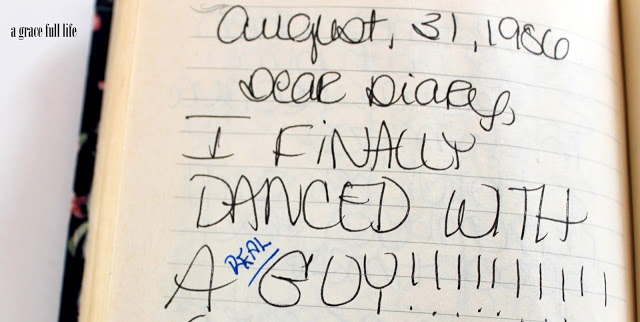 a grace full life
August, 31, 1986
Dear Diary,
I FiNALLY
DANCED WITH
A REAL GUY!!!!!!!!!!!